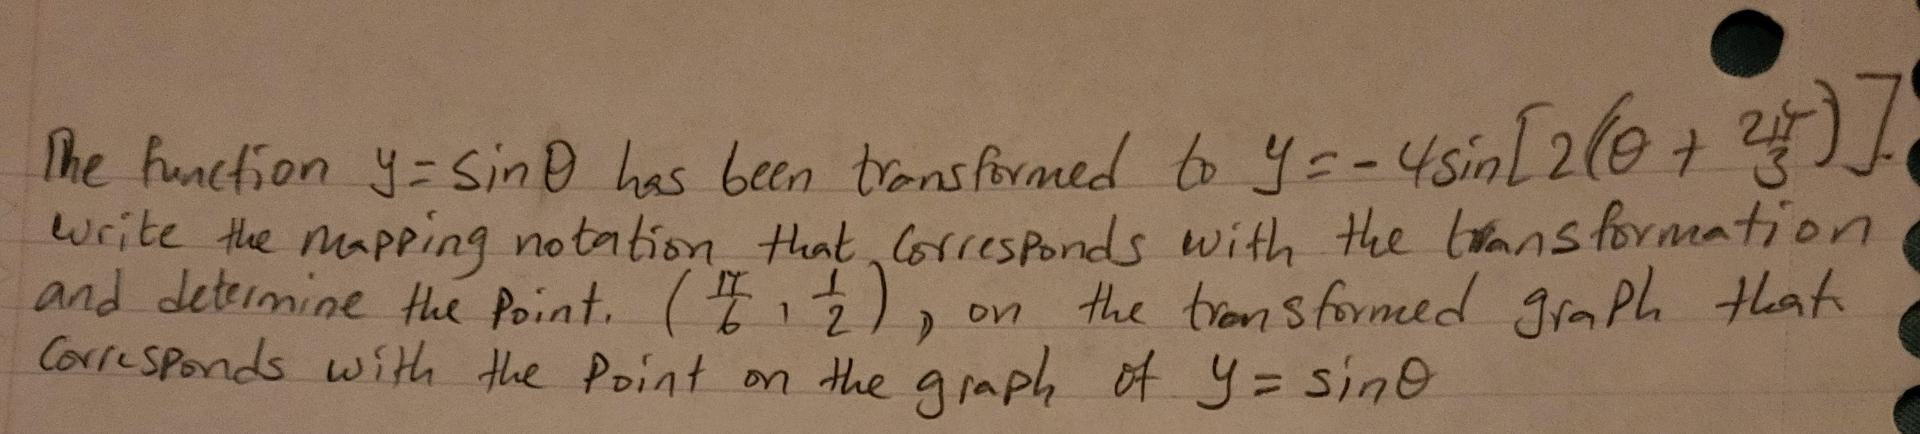 The function y = sinθ has been transformed to y = -4sin[2(θ + 2π/3)].
write the mapping notation that corresponds with the transformation
and determine the point. (π/6, 1/2), on the transformed graph that
corresponds with the point on the graph of y = sinθ